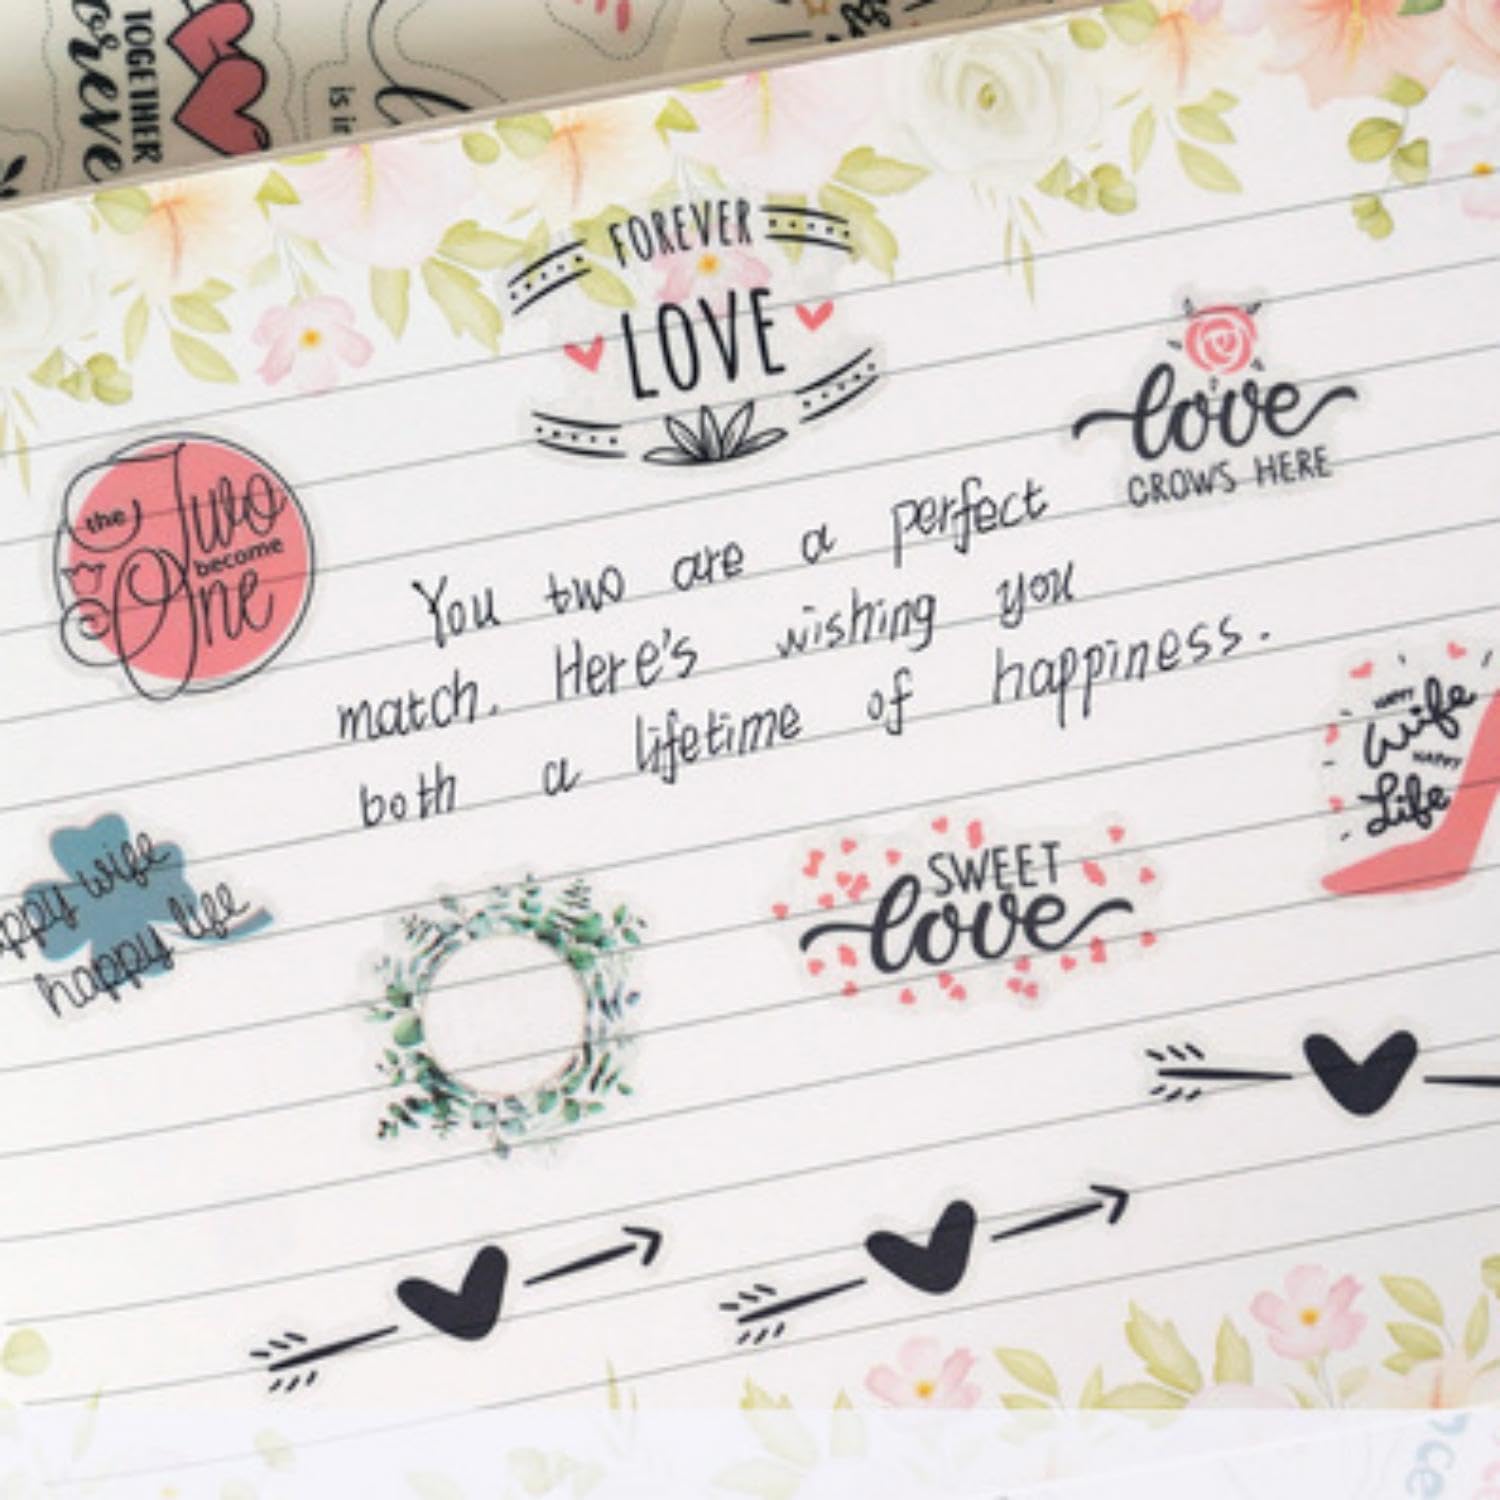 TOGETHER
is in
FOREVER
LOVE
love
GROWS HERE
the Two
become
One
You two are a perfect
match. Here's wishing you
both a lifetime of happiness.
HAPPY
Wife
HAPPY
Life
happy life
SWEET
love